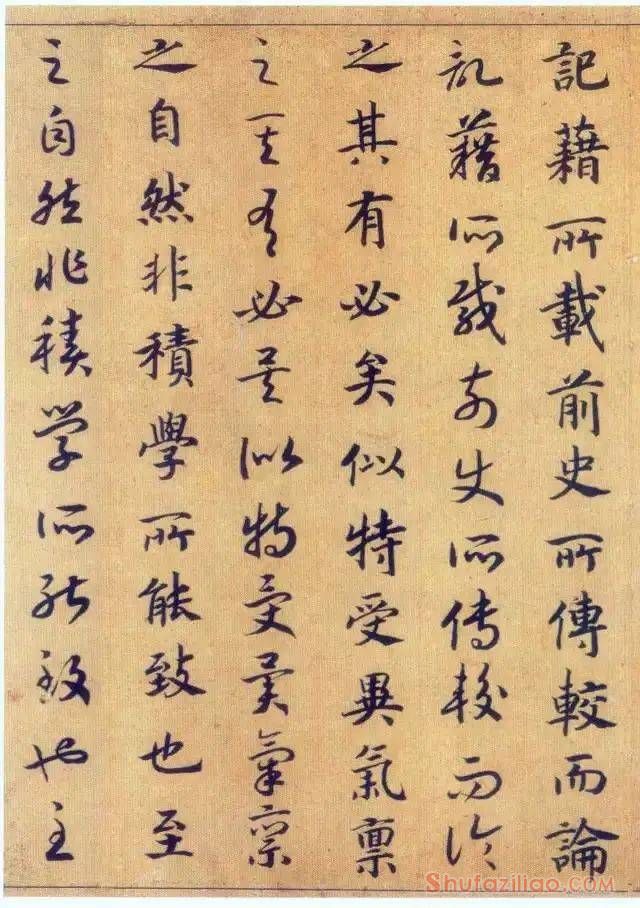 記藉所載前史所傳較而論
記藉所載前史所傳較而論
之其有必矣似特受異氣禀
之其有必矣似特受異氣禀
之自然非積學所能致也至
之自然非積學所能致也至
Shufaziliao.com